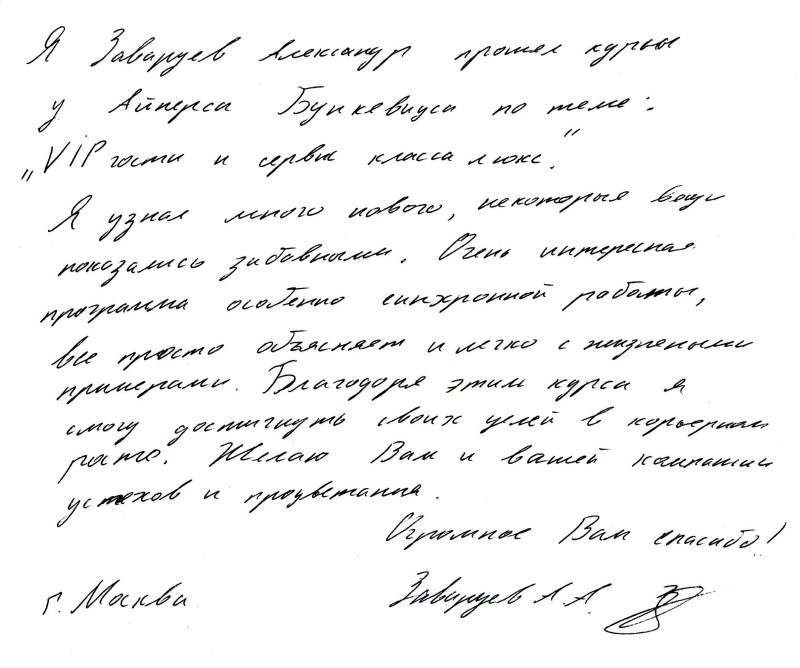 Я Заваруев Александр прошел курсы
у Айнерса Бункевиуса по теме:
„VIP гости и сервис класса люкс."
Я узнал много нового, некоторые вещи
показались забавными. Очень интересная
программа особенно синхронной работы,
все просто объясняет и легко с жизнеными
примерами. Благодоря этим курса я
смогу достигнуть своих целей в карьерном
росте. Желаю Вам и вашей компании
успехов и процветания.
Огромное Вам спасибо!
г. Москва Заваруев А. А.